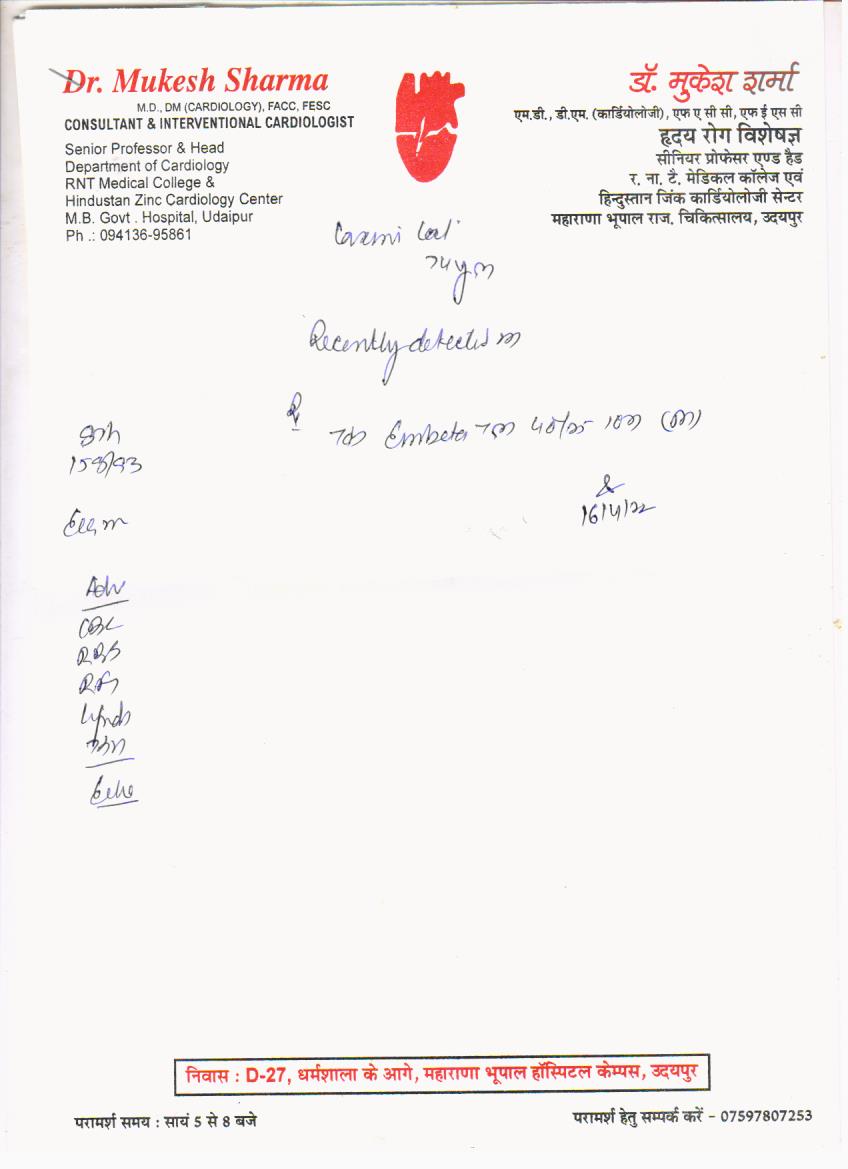 Dr. Mukesh Sharma
M.D., DM (CARDIOLOGY), FACC, FESC
CONSULTANT & INTERVENTIONAL CARDIOLOGIST
Senior Professor & Head
Department of Cardiology
RNT Medical College &
Hindustan Zinc Cardiology Center
M.B. Govt . Hospital, Udaipur
Ph .: 094136-95861
डॉ. मुकेश शर्मा
एम.डी., डी.एम. (कार्डियोलॉजी), एफ ए सी सी, एफ ई एस सी
हृदय रोग विशेषज्ञ
सीनियर प्रोफेसर एण्ड हैड
र. ना. टै. मेडिकल कॉलेज एवं
हिन्दुस्तान जिंक कार्डियोलोजी सेन्टर
महाराणा भूपाल राज. चिकित्सालय, उदयपुर
Laxmi Lal
Recently detected
16/4/22
Adv
CBC
RBS
RFT
Echo
निवास : D-27, धर्मशाला के आगे, महाराणा भूपाल हॉस्पिटल केम्पस, उदयपुर
परामर्श समय : सायं 5 से 8 बजे
परामर्श हेतु सम्पर्क करें – 07597807253